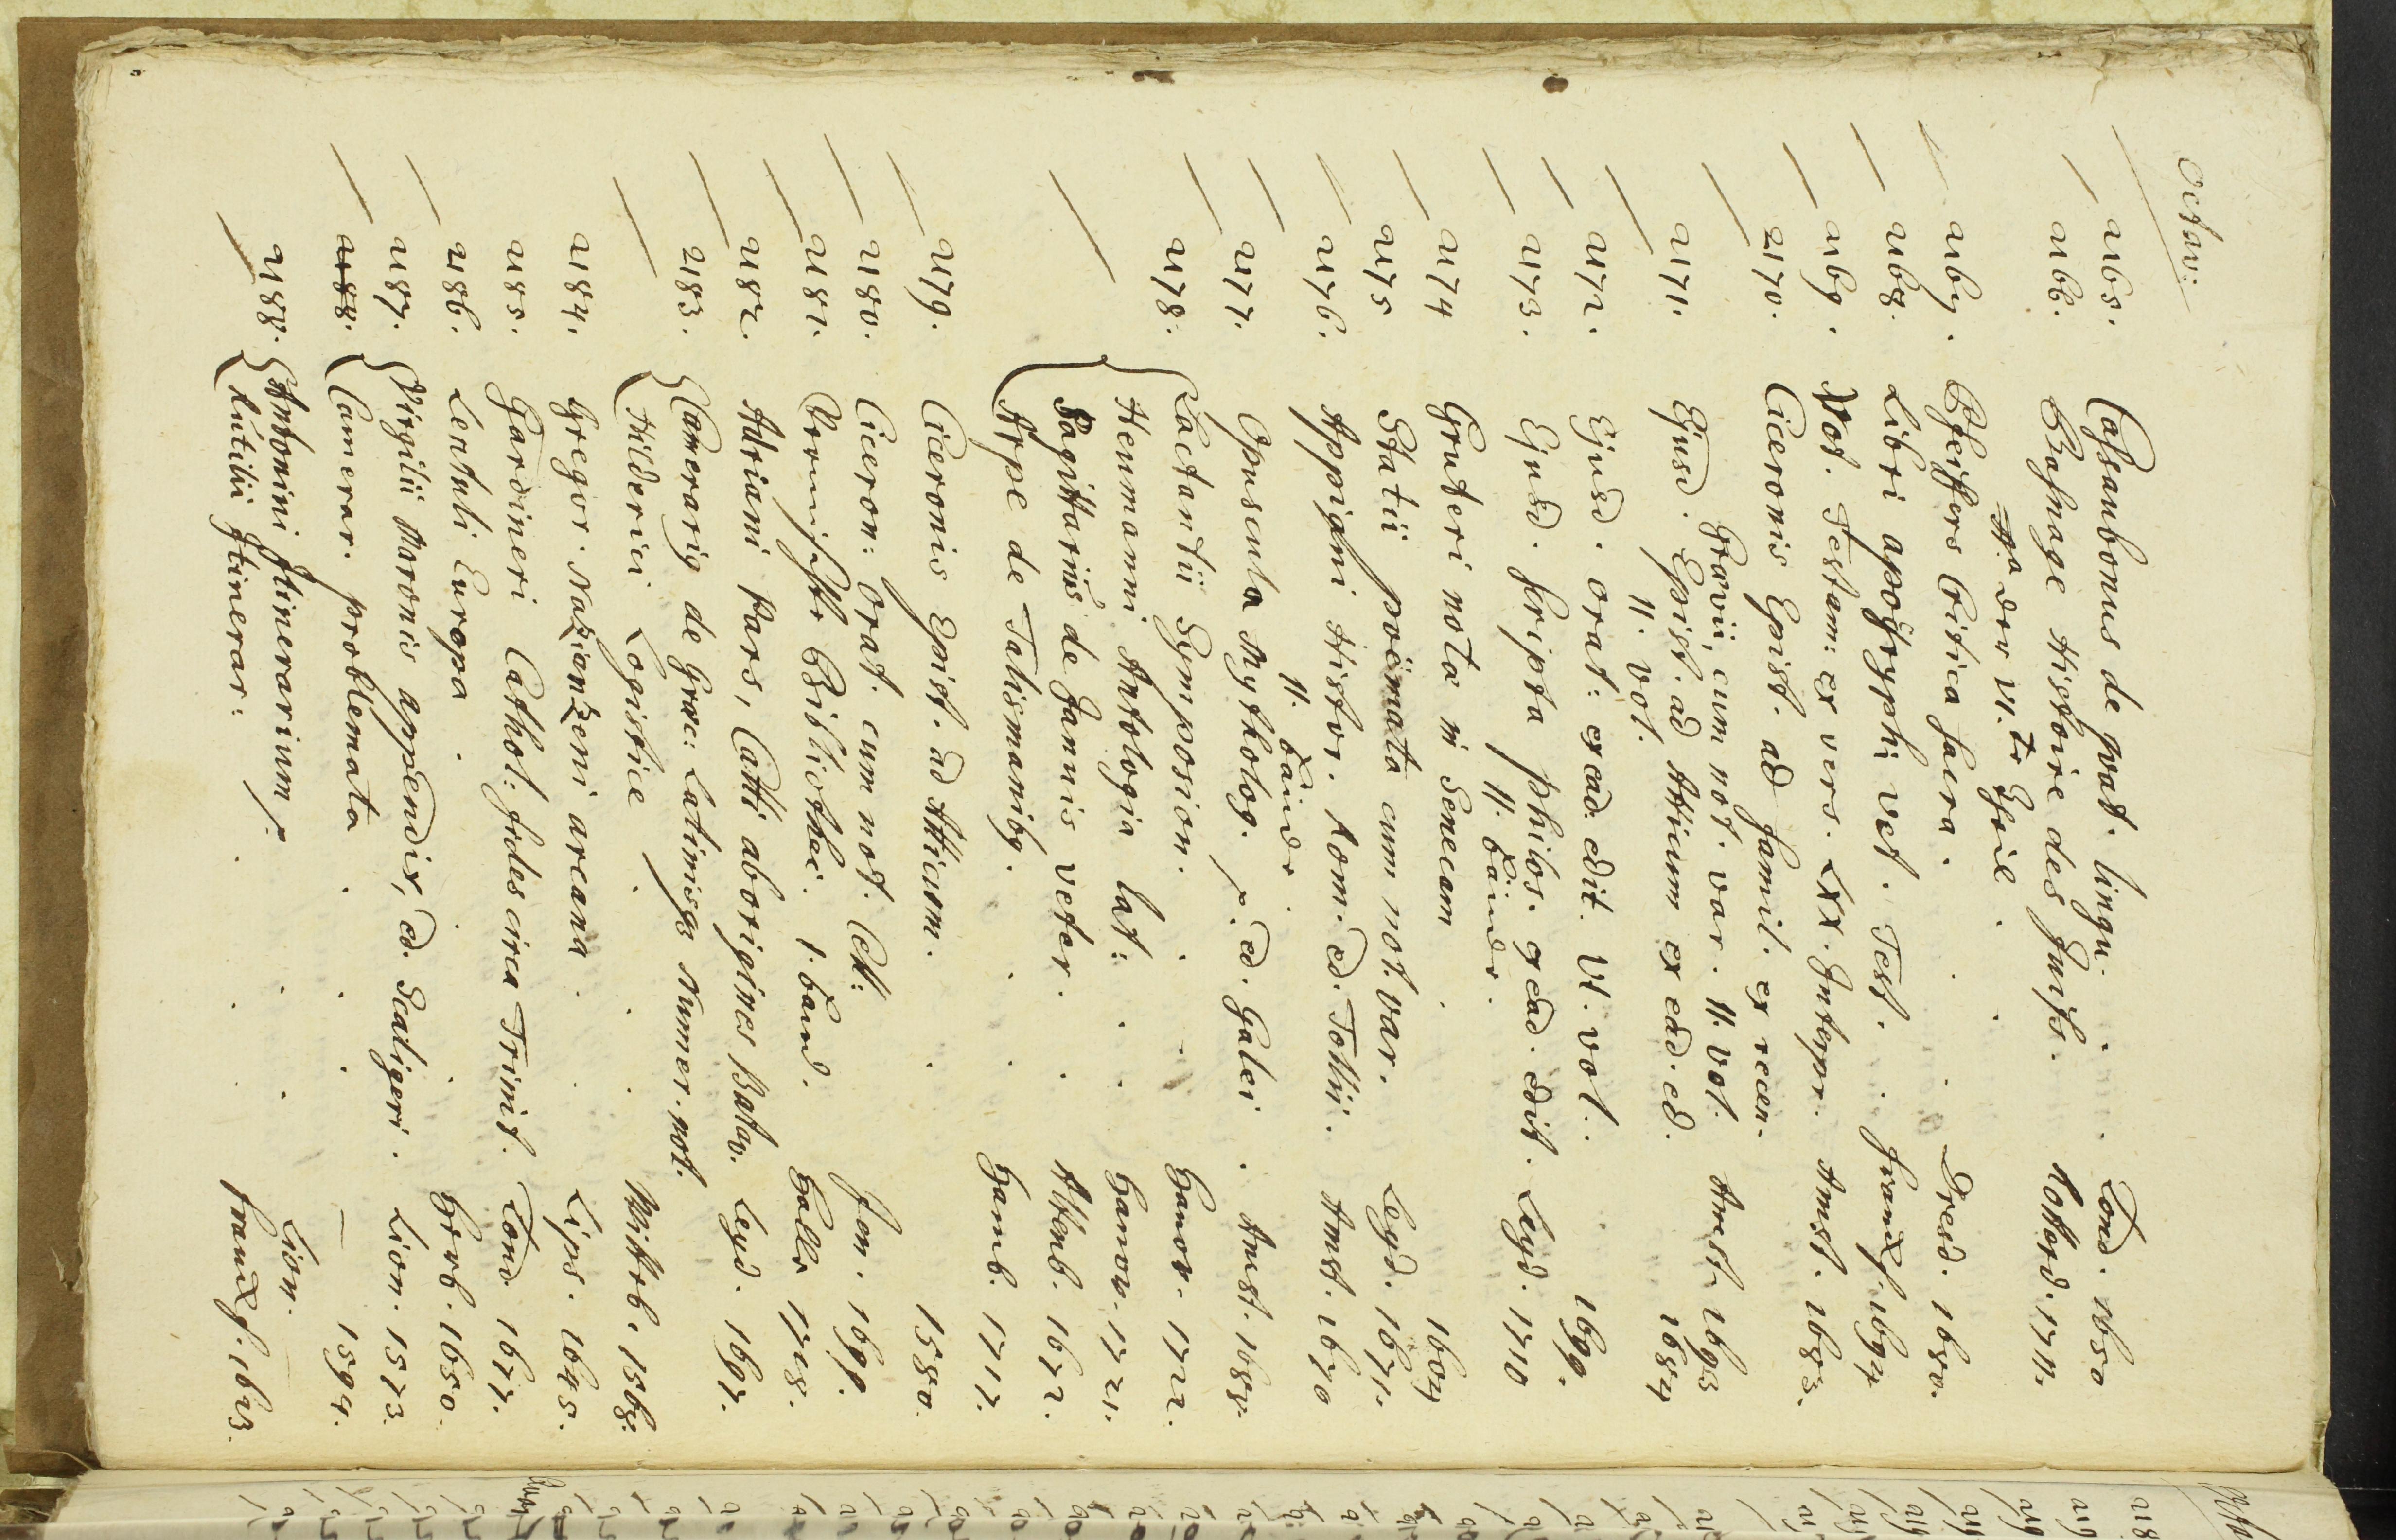 Octav:
2165. Casaubonus de quat. lingu. . . Lond. 1650
2166. Basnage Histoire des Juifs. Rotterd. 1711.
der VI.te Theil . .
2167. Pfeiffers Critica sacra. . . Dresd. 1680.
2168. Libri apocryphi Vet. Test. . Franckf. 1694
2169. Vet. Testam: ex vers. LXX. Interpr. Amst. 1683.
2170. Ciceronis Epist. ad famil. ex recen.
Grævii, cum not. var. II. vol. Amst. 1693
2171. Ejusd. Epist. ad Atticum ex ead. ed. 1684
II. vol.
2172. Ejusd. orat: ex ead. edit. VI. vol. . 1699.
2173. Ejusd. scripta philos. ex ead. edit. Leyd. 1710
II. bänd.
2174 Gruteri notæ in Senecam . 1604
2175 Statii poëmata cum not. var. Leyd. 1671.
2176. Appiani Histor. Rom. ed. Tollii. Amst. 1670
II. bände.
2177. Opuscula Mytholog. p. ed. Galei . Amst. 1688.
2178. Lactantii Symposion. . . Hanov. 1722.
Heumanni Antologia lat: . . Hanov. 1721.
Sagittarius de Januis veter. . Altenb. 1672.
Arpe de Talismanib. . . Hamb. 1717.
2179. Ciceronis Epist. ad Atticum. . 1580.
2180. Ciceron: orat. cum not. Cell: Jen. 1698.
2181. Bibliothec. 1. band. Halle 1718.
2182. Adriani Pars, Catti aborigines Batav. Leyd. 1697.
2183. Camerarig de Græc: Latinisq numer. not.
Hilderici Logistice . . . Witteb. 1568.
2184. Gregor. Nazianzeni arcana . . Lips. 1645.
2185. Gardineri Cathol: fides circa Trinit. Lond. 1677.
2186. Lentuli Europa . . . Herb. 1650.
2187. Virgilii Maronis appendix, ed. Scaligeri. Lion. 1573.
2188. Camerar. problemata . . . — 1594.
2188. Antonini Itinerarium . . Lion.
Rutilii Itinerar: . . . Franckf. 1623.